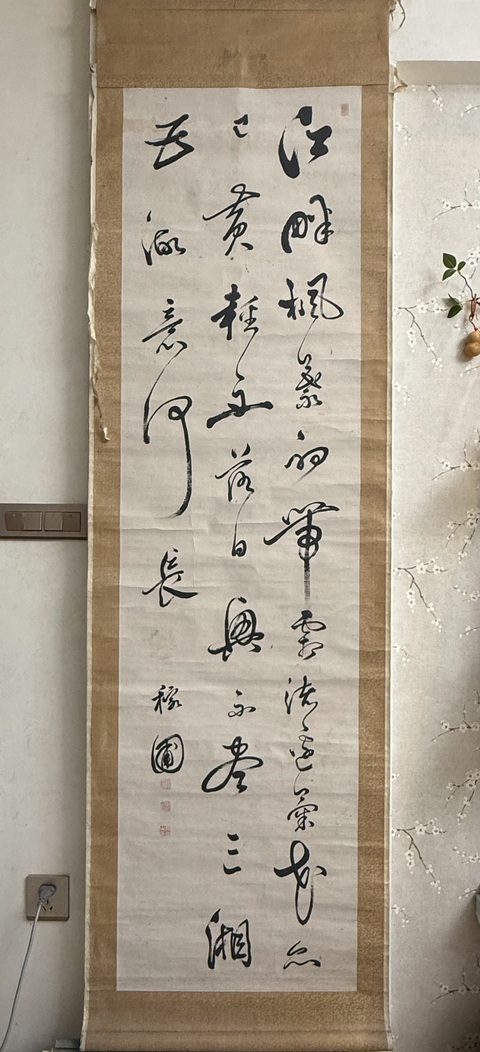 江畔楓葉初帶霜渚邊菊花亦
已黄輕舟落日興不盡三湘
五湖意何長
稼圃